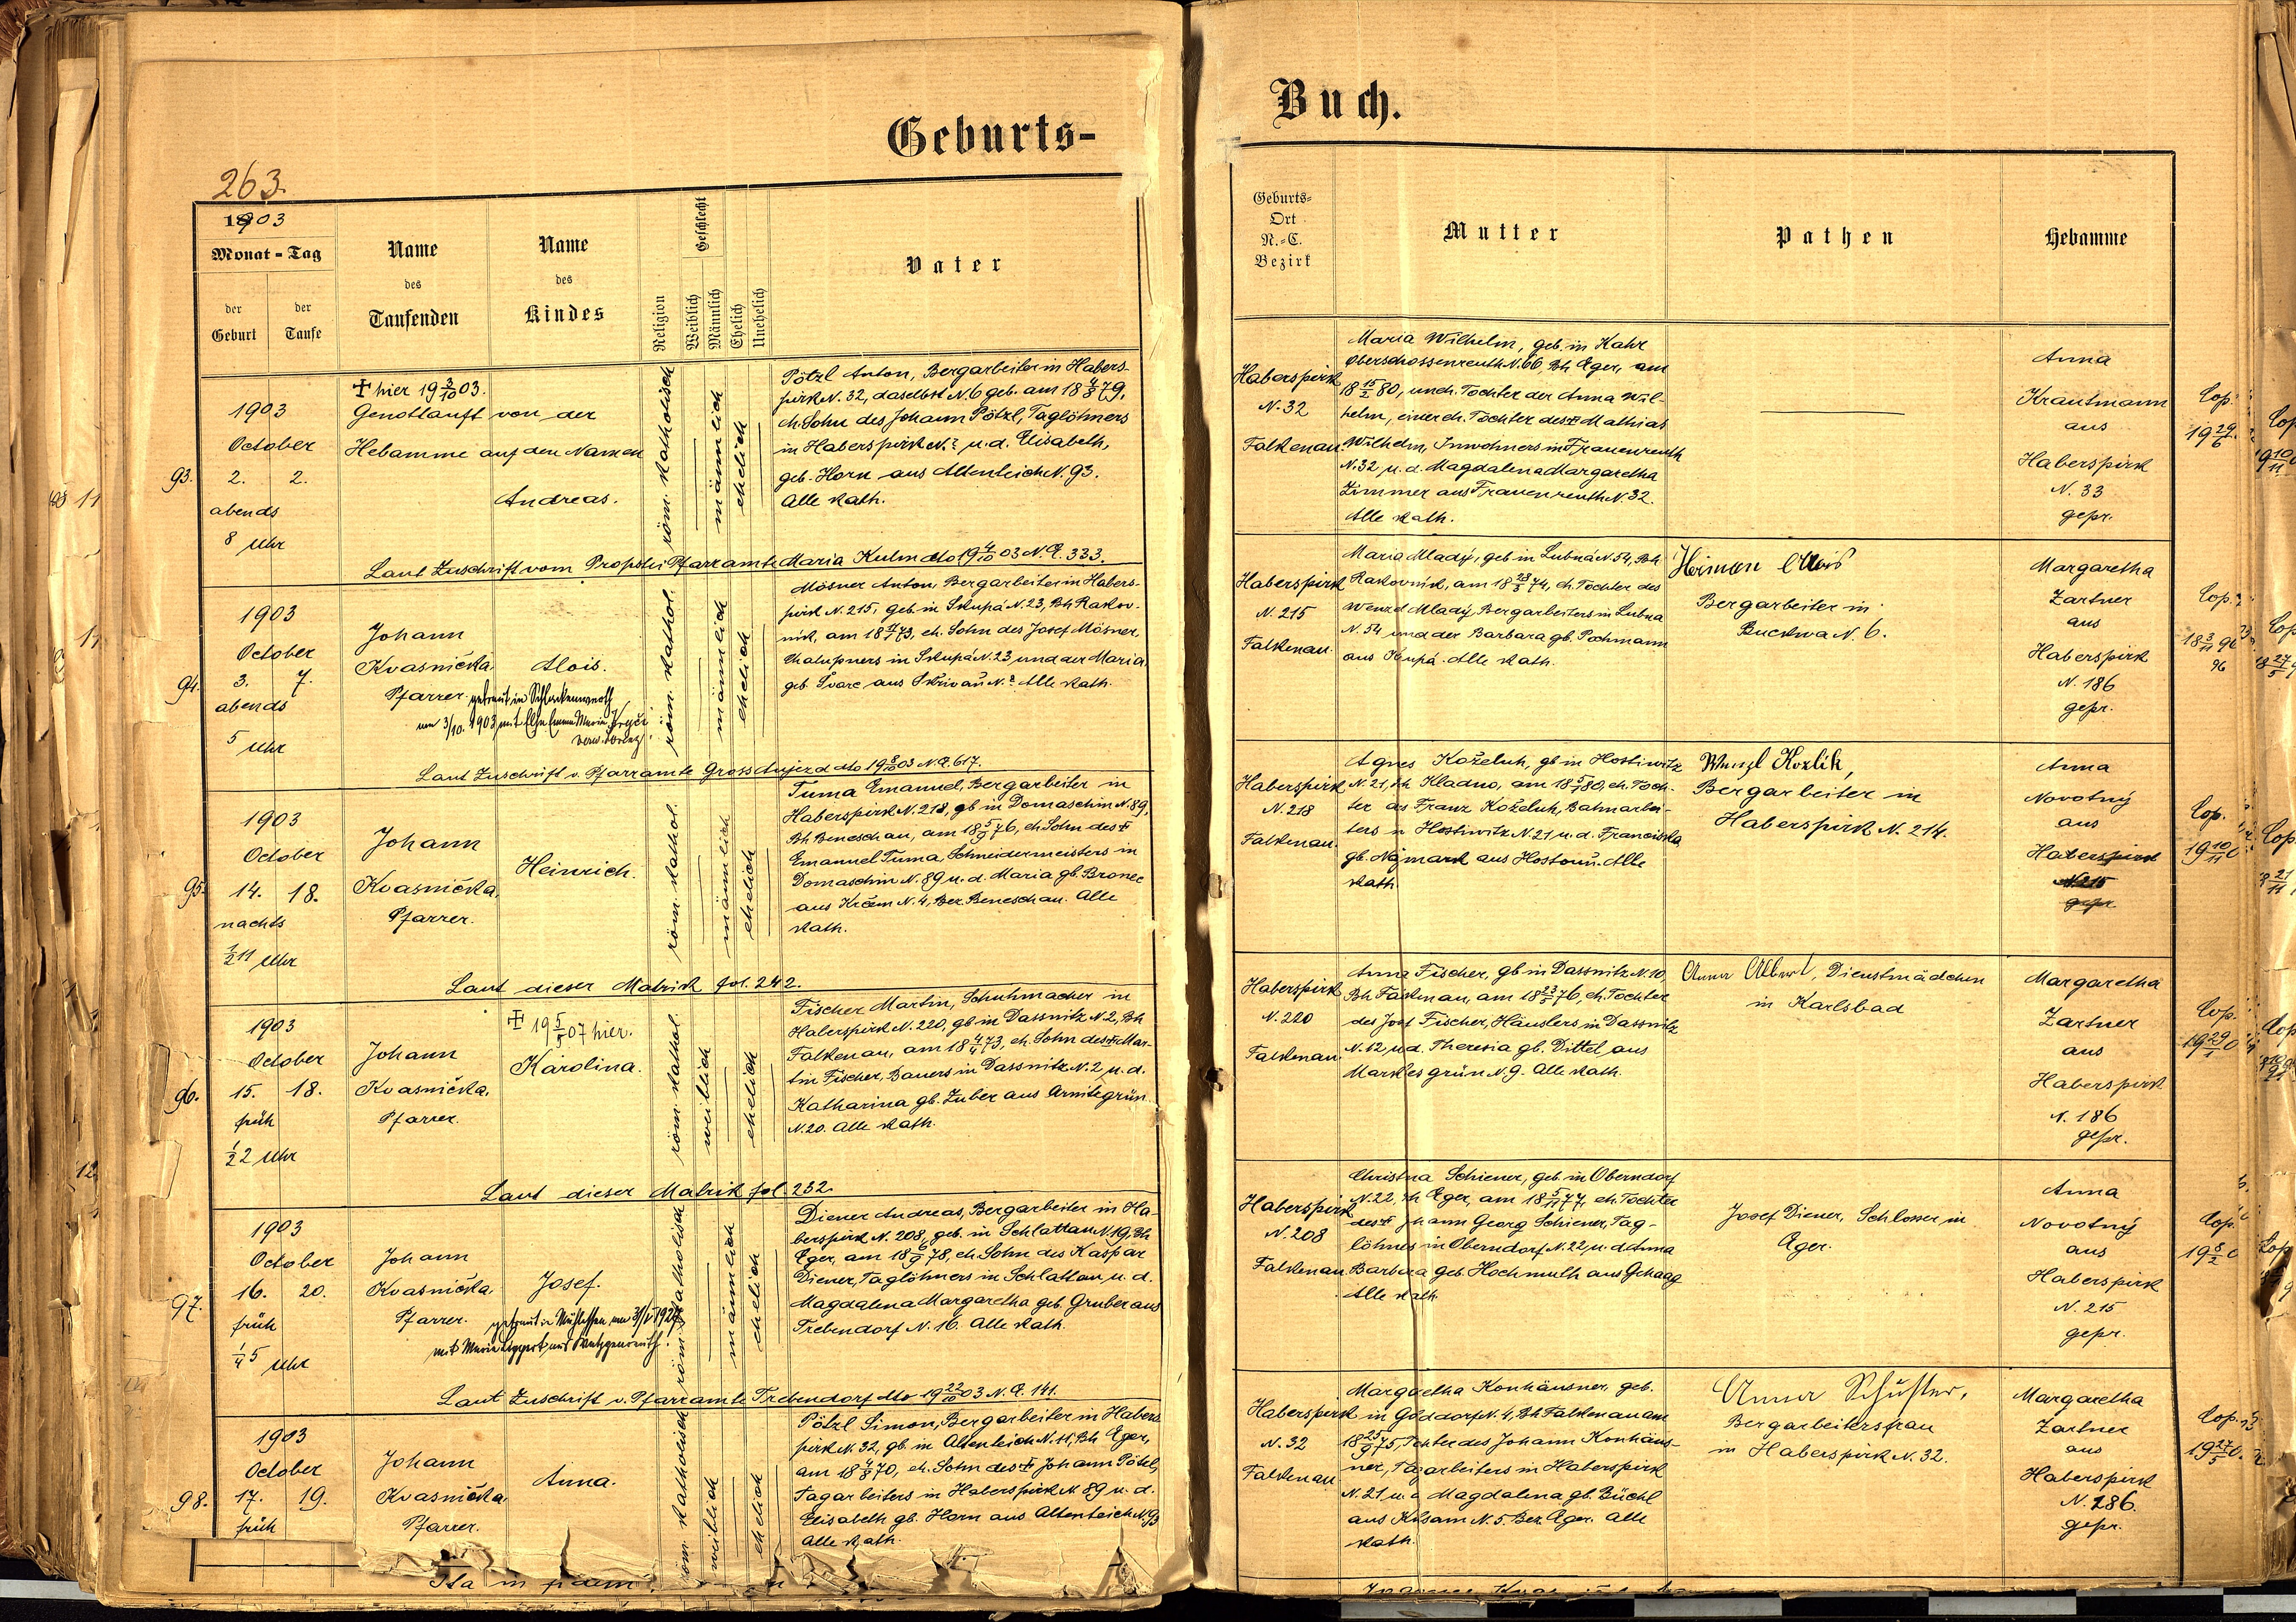 Geburts-
Buch.
263.
1903
Monat - Tag
der Geburt
der Taufe
Name des Taufenden
Name des Kindes
Religion
Geschlecht
Weiblich
Männlich
Ehelich
Unehelich
Vater
Geburts-Ort N.-C. Bezirk
Mutter
Pathen
Hebamme
93.
1903
October
2. 2.
abends
8 Uhr
✝ hier 19 3/10 03.
Genottauft von der
Hebamme auf den Namen
Andreas.
röm. katholisch
männlich
ehelich
Pötzl Anton, Bergarbeiter in Habers-
pirk N. 32, daselbst N. 6 geb. am 18 4/8 79,
eh. Sohn des Johann Pötzl, Taglöhners
in Haberspirk N. ? u. d. Elisabeth,
geb. Horn aus Altenteich N. 93.
Alle kath.
Haberspirk
N. 32
Falkenau.
Maria Wilhelm, geb. in Kahr
Oberschossenreuth N. 66, Bh Eger, am
18 15/2 80, uneh. Tochter der Anna Wil-
helm, einer eh. Tochter des ✝ Mathias
Wilhelm, Inwohners in Frauenreuth
N. 32 u. d. Magdalena Margaretha
Zimmer aus Frauenreuth N. 32.
Alle kath.
Anna
Krautmann
aus
Haberspirk
N. 33
gepr.
Cop.
19 29/6
Laut Zuschrift vom Propstei Pfarramte Maria Kulm dto 19 4/10 03 N. E. 333.
94.
1903
October
3. 7.
abends
5 Uhr
Johann
Kvasnička
Pfarrer.
Alois.
getraut in Schlackenwerth
am 3/10. 1903, mit
röm. kathol.
männlich
ehelich
Mösner Anton, Bergarbeiter in Habers-
pirk N. 215, geb. in Skupá N. 23, Bh Rakov-
nik, am 18 73, eh. Sohn des Josef Mösner,
Chalupners in Skupá N. 23 und der Maria
geb. Švarc aus Skřivaň N. ? Alle kath.
Haberspirk
N. 215
Falkenau.
Maria Mladý, geb. in Lubná N. 54, Bh
Rakovnik, am 18 28/5 74, eh. Tochter des
Wenzel Mladý, Bergarbeiters in Lubna
N. 54 und der Barbara gb. Pochmann
aus Skupá. Alle kath.
Herman Alois
Bergarbeiter in
Buckwa N. 6.
Margaretha
Zartner
aus
Haberspirk
N. 186
gepr.
Cop.
18 3/11 96
96
Laut Zuschrift v. Pfarramte Gross Aujezd dto 19 8/10 03 N. E. 617.
95.
1903
October
14. 18.
nachts
1/2 11 Uhr
Johann
Kvasnička,
Pfarrer.
Heinrich.
röm. kathol.
männlich
ehelich
Tuma Emanuel, Bergarbeiter in
Haberspirk N. 218, gb in Domaschin N. 89,
Bh Beneschau, am 18 5/9 76, eh. Sohn des ✝
Emanuel Tuma, Schneidermeisters in
Domaschin N. 89 u. d. Maria gb. Bronec
aus Křcem N. 4, Bez. Beneschau. Alle
kath.
Haberspirk
N. 218
Falkenau.
Agnes Koželuh, gb in Hostiwitz
N. 21, Bh Kladno, am 18 5/1 80, eh. Toch-
ter des Franz Koželuh, Bahnarbei-
ters in Hostiwitz N. 21 u. d. Franciska
gb. Najmark aus Hostouň. Alle
kath.
Wenzl Kozlik,
Bergarbeiter in
Haberspirk N. 214.
Anna
Novotný
aus
Haberspirk
N. 215
gepr.
Cop.
19 10/11 0
Laut dieser Matrik fol. 242.
96.
1903
October
15. 18.
früh
1/2 2 Uhr
Johann
Kvasnička,
Pfarrer.
✝ 19 5/5 07 hier.
Karolina.
röm. kathol.
weiblich
ehelich
Fischer Martin, Schuhmacher in
Haberspirk N. 220, gb in Dassnitz N 2, Bh
Falkenau, am 18 4/4 73, eh. Sohn des ✝ Mar-
tin Fischer, Bauers in Dassnitz N. 2 u. d.
Katharina gb. Zuber aus Arnitzgrün
N. 20. Alle kath.
Haberspirk
N. 220
Falkenau.
Anna Fischer, gb in Dassnitz N. 10,
Bh Falkenau, am 18 23/5 76, eh. Tochter
des Josef Fischer, Häuslers in Dassnitz
N. 12, u. d. Theresia gb. Dittel aus
Markesgrün N. 9. Alle kath.
Anna Albert, Dienstmädchen
in Karlsbad
Margaretha
Zartner
aus
Haberspirk
N. 186
gepr.
Cop.
19 29/1 0
Laut dieser Matrik fol. 232.
97.
1903
October
16. 20.
früh
1/4 5 Uhr
Johann
Kvasnička
Pfarrer.
Josef.
getraut in Mühlessen am
mit Maria Lippert aus
röm. katholisch
männlich
ehelich
Diener Andreas, Bergarbeiter in Ha-
berspirk N. 208, geb. in Schlattau N. 19, Bh
Eger, am 18 6/9 78, eh. Sohn des Kaspar
Diener, Taglöhners in Schlattau, u. d.
Magdalena Margaretha geb. Gruber aus
Trebendorf N. 16. Alle kath.
Haberspirk
N. 208
Falkenau.
Christina Schiener, geb. in Oberndorf
N. 22, Bh Eger, am 18 5/11 77, eh. Tochter
des ✝ Johann Georg Schiener, Tag-
löhners in Oberndorf N. 22, u. d. Anna
Barbara geb. Hochmuth aus Gehaag
Alle kath.
Josef Diener, Schlosser in
Eger.
Anna
Novotný
aus
Haberspirk
N. 215
gepr.
Cop.
19 8/2 0
Laut Zuschrift v. Pfarramte Trebendorf dto 19 22/10 03 N. E. 141.
98.
1903
October
17. 19.
früh
Johann
Kvasnička,
Pfarrer.
Anna.
röm. katholisch
weiblich
ehelich
Pötzl Simon, Bergarbeiter in Habers-
pirk N. 32, gb. in Altenteich N. 11, Bh Eger,
am 18 4/8 70, eh. Sohn des ✝ Johann Pötzl,
Tagarbeiters in Haberspirk N 89 u. d.
Elisabeth gb. Horn aus Altenteich N. 93
Alle kath.
Haberspirk
N. 32
Falkenau.
Margaretha Konhäusner, geb.
in Golddorf N. 4, Bh Falkenau am
18 25/9 75, Tochter des Johann Konhäus-
ner, Tagarbeiters in Haberspirk
N. 21 u. d. Magdalena gb. Büchl
aus Kulsam N. 5. Bez. Eger. Alle
kath.
Anna Schuster,
Bergarbeitersfrau
in Haberspirk N. 32.
Margaretha
Zartner
aus
Haberspirk
N. 286.
gepr.
Cop.
19 27/5 0.